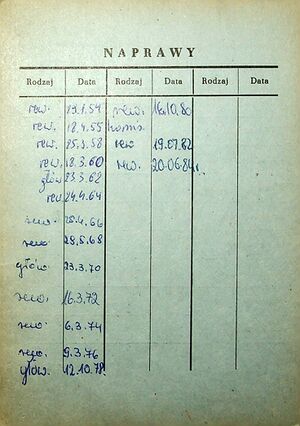 NAPRAWY
Rodzaj Data Rodzaj Data Rodzaj Data
rew. 19.1.54 rew. 16.10.80
rew. 18.4.55
rew. 25.3.58 rew 19.07.82
rew. 18.3.60 rew. 20.06.84r.
głów 23.3.62
rew 24.4.64
rew. 25.4.66
rew 28.5.68
głów. 23.3.70
rew. 16.3.72
rew. 6.3.74
rew. 9.3.76
głów. 12.10.78.